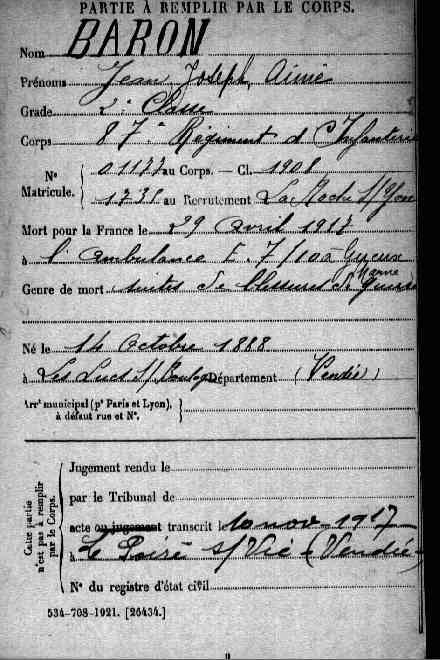 PARTIE À REMPLIR PAR LE CORPS.
Nom BARON
Prénoms Jean Joseph Aimé
Grade 2e Classe
Corps 87e Régiment d'Infanterie
Nos Matricule. { 01177 au Corps. — Cl. 1908
1735 au Recrutement La Roche s/Yon
Mort pour la France le 29 avril 1917
à l'ambulance 7/100
Marne
Genre de mort suites de blessures de guerre
Né le 14 Octobre 1888
à Les Lucs s/Boulogne Département (Vendée)
Arrt municipal (pr Paris et Lyon), à défaut rue et N°. }
Cette partie n'est pas à remplir par le Corps.
Jugement rendu le
par le Tribunal de
acte ou jugement transcrit le 10 nov. 1917
à Le Poiré s/Vie (Vendée)
N° du registre d'état civil
534-708-1921. [26434.]